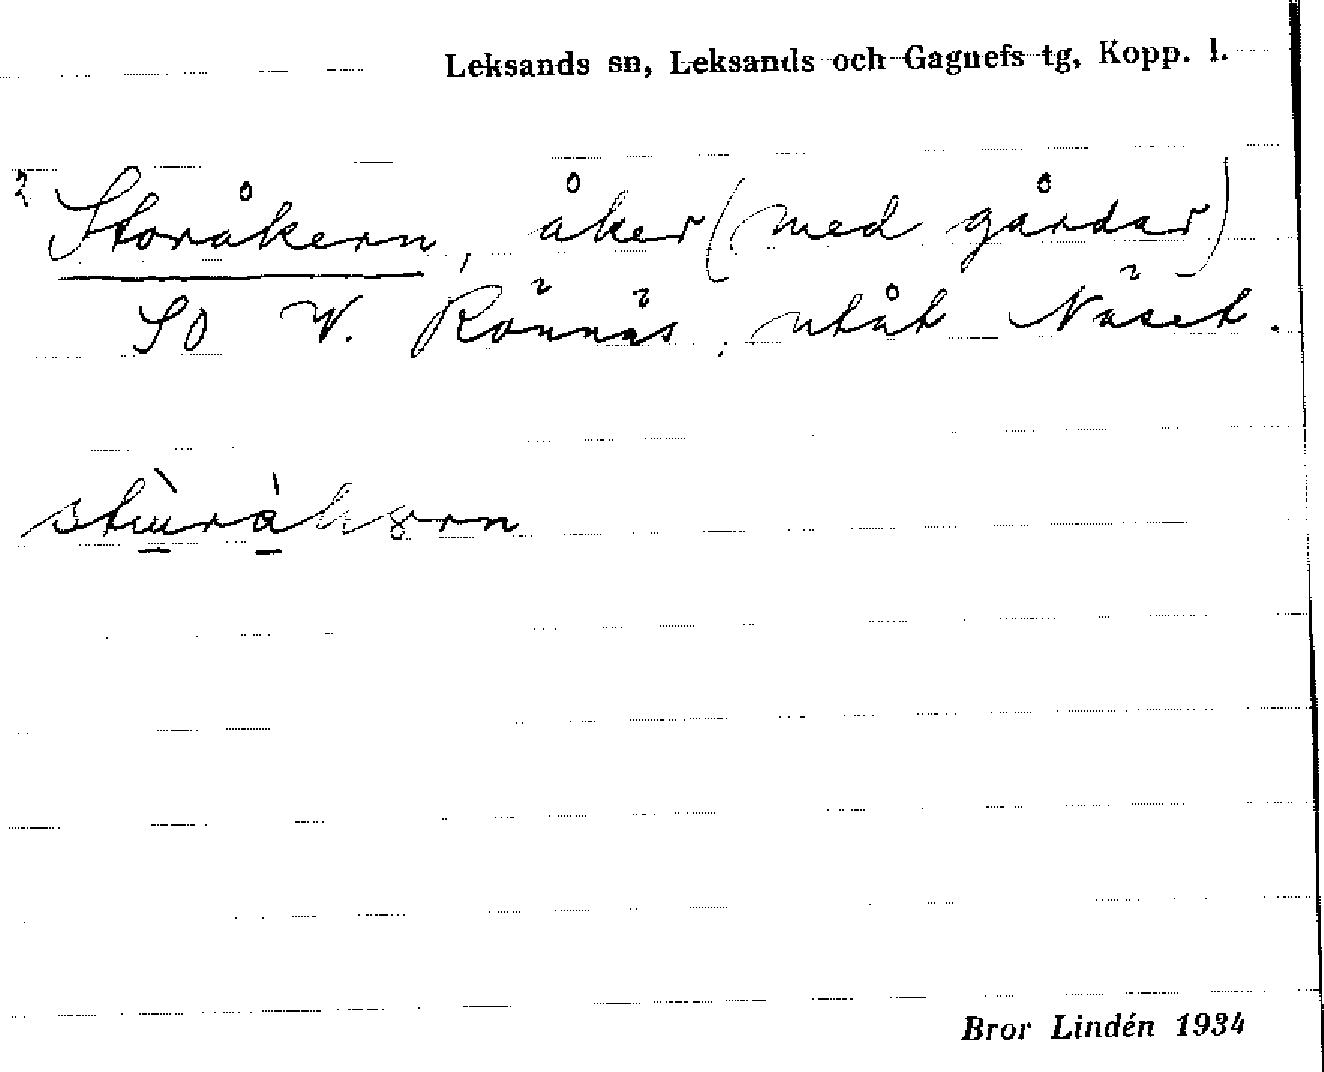 Leksands sn, Leksands och Gagnefs tg, Kopp. l.
2 Storåkern, åker (med gårdar)
SO V. Rönnäs, utåt Näset.
Bror Lindén 1934